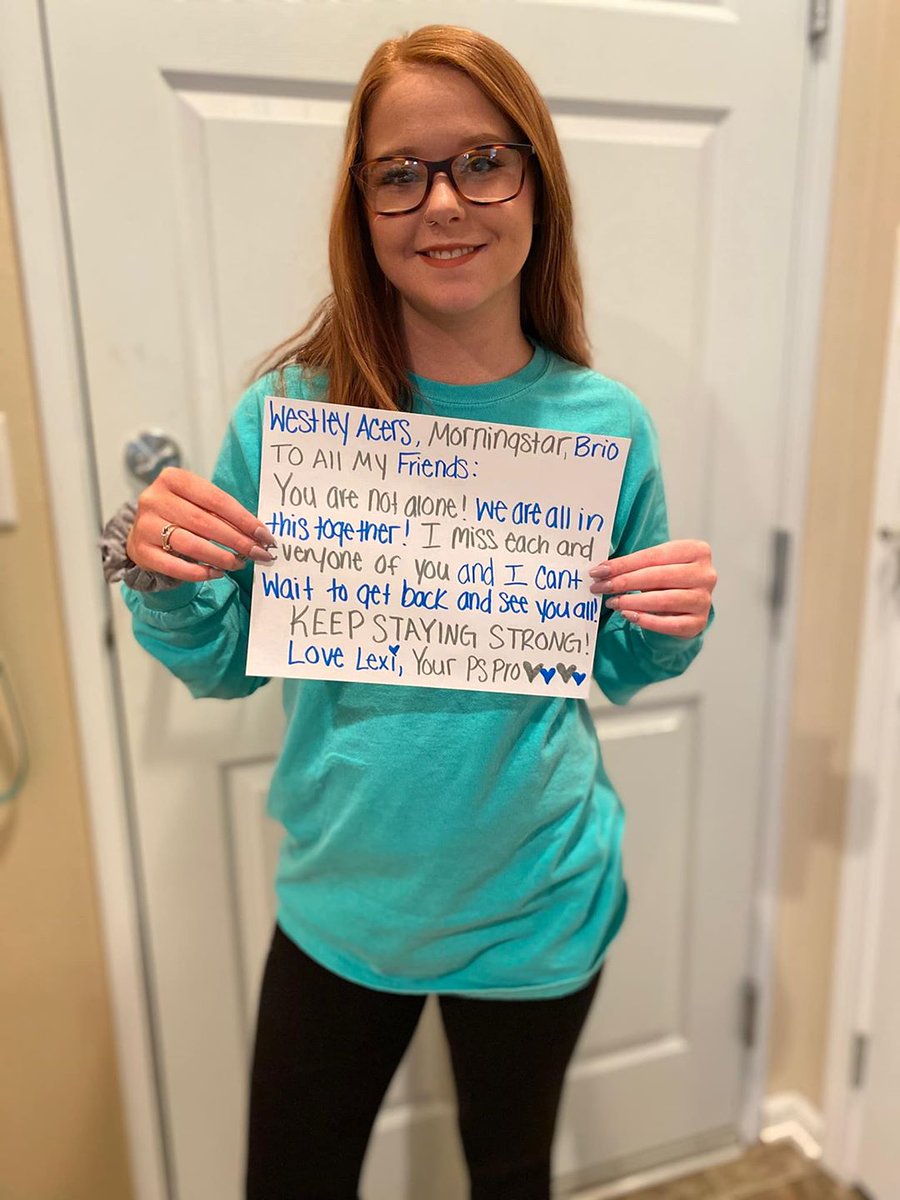 Westley Acers, Morningstar, Brio
To All My Friends:
You are not alone! We are all in
this together! I miss each and
everyone of you and I cant
Wait to get back and see you all!
KEEP STAYING STRONG!
Love Lexi, Your PS Pro